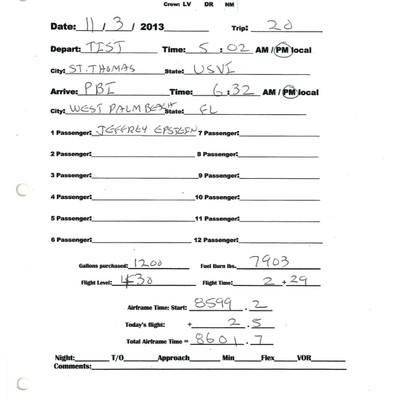 Crew: LV DR NM
Date: 11/3/2013 Trip: 20
Depart: TIST Time: 5:02 AM / PM local
City: ST. THOMAS State: USVI
Arrive: PBI Time: 6:32 AM / PM local
City: WEST PALM BEACH State: FL
1 Passenger: JEFFREY EPSTEIN 7 Passenger:
2 Passenger: 8 Passenger:
3 Passenger: 9 Passenger:
4 Passenger: 10 Passenger:
5 Passenger: 11 Passenger:
6 Passenger: 12 Passenger:
Gallons purchased: 1200 Fuel Burn lbs. 7903
Flight Level: 430 Flight Time: 2 + 29
Airframe Time: Start: 8599.2
Today's flight: + 2.5
Total Airframe Time = 8601.7
Night: T/O Approach Min Flex VOR
Comments: